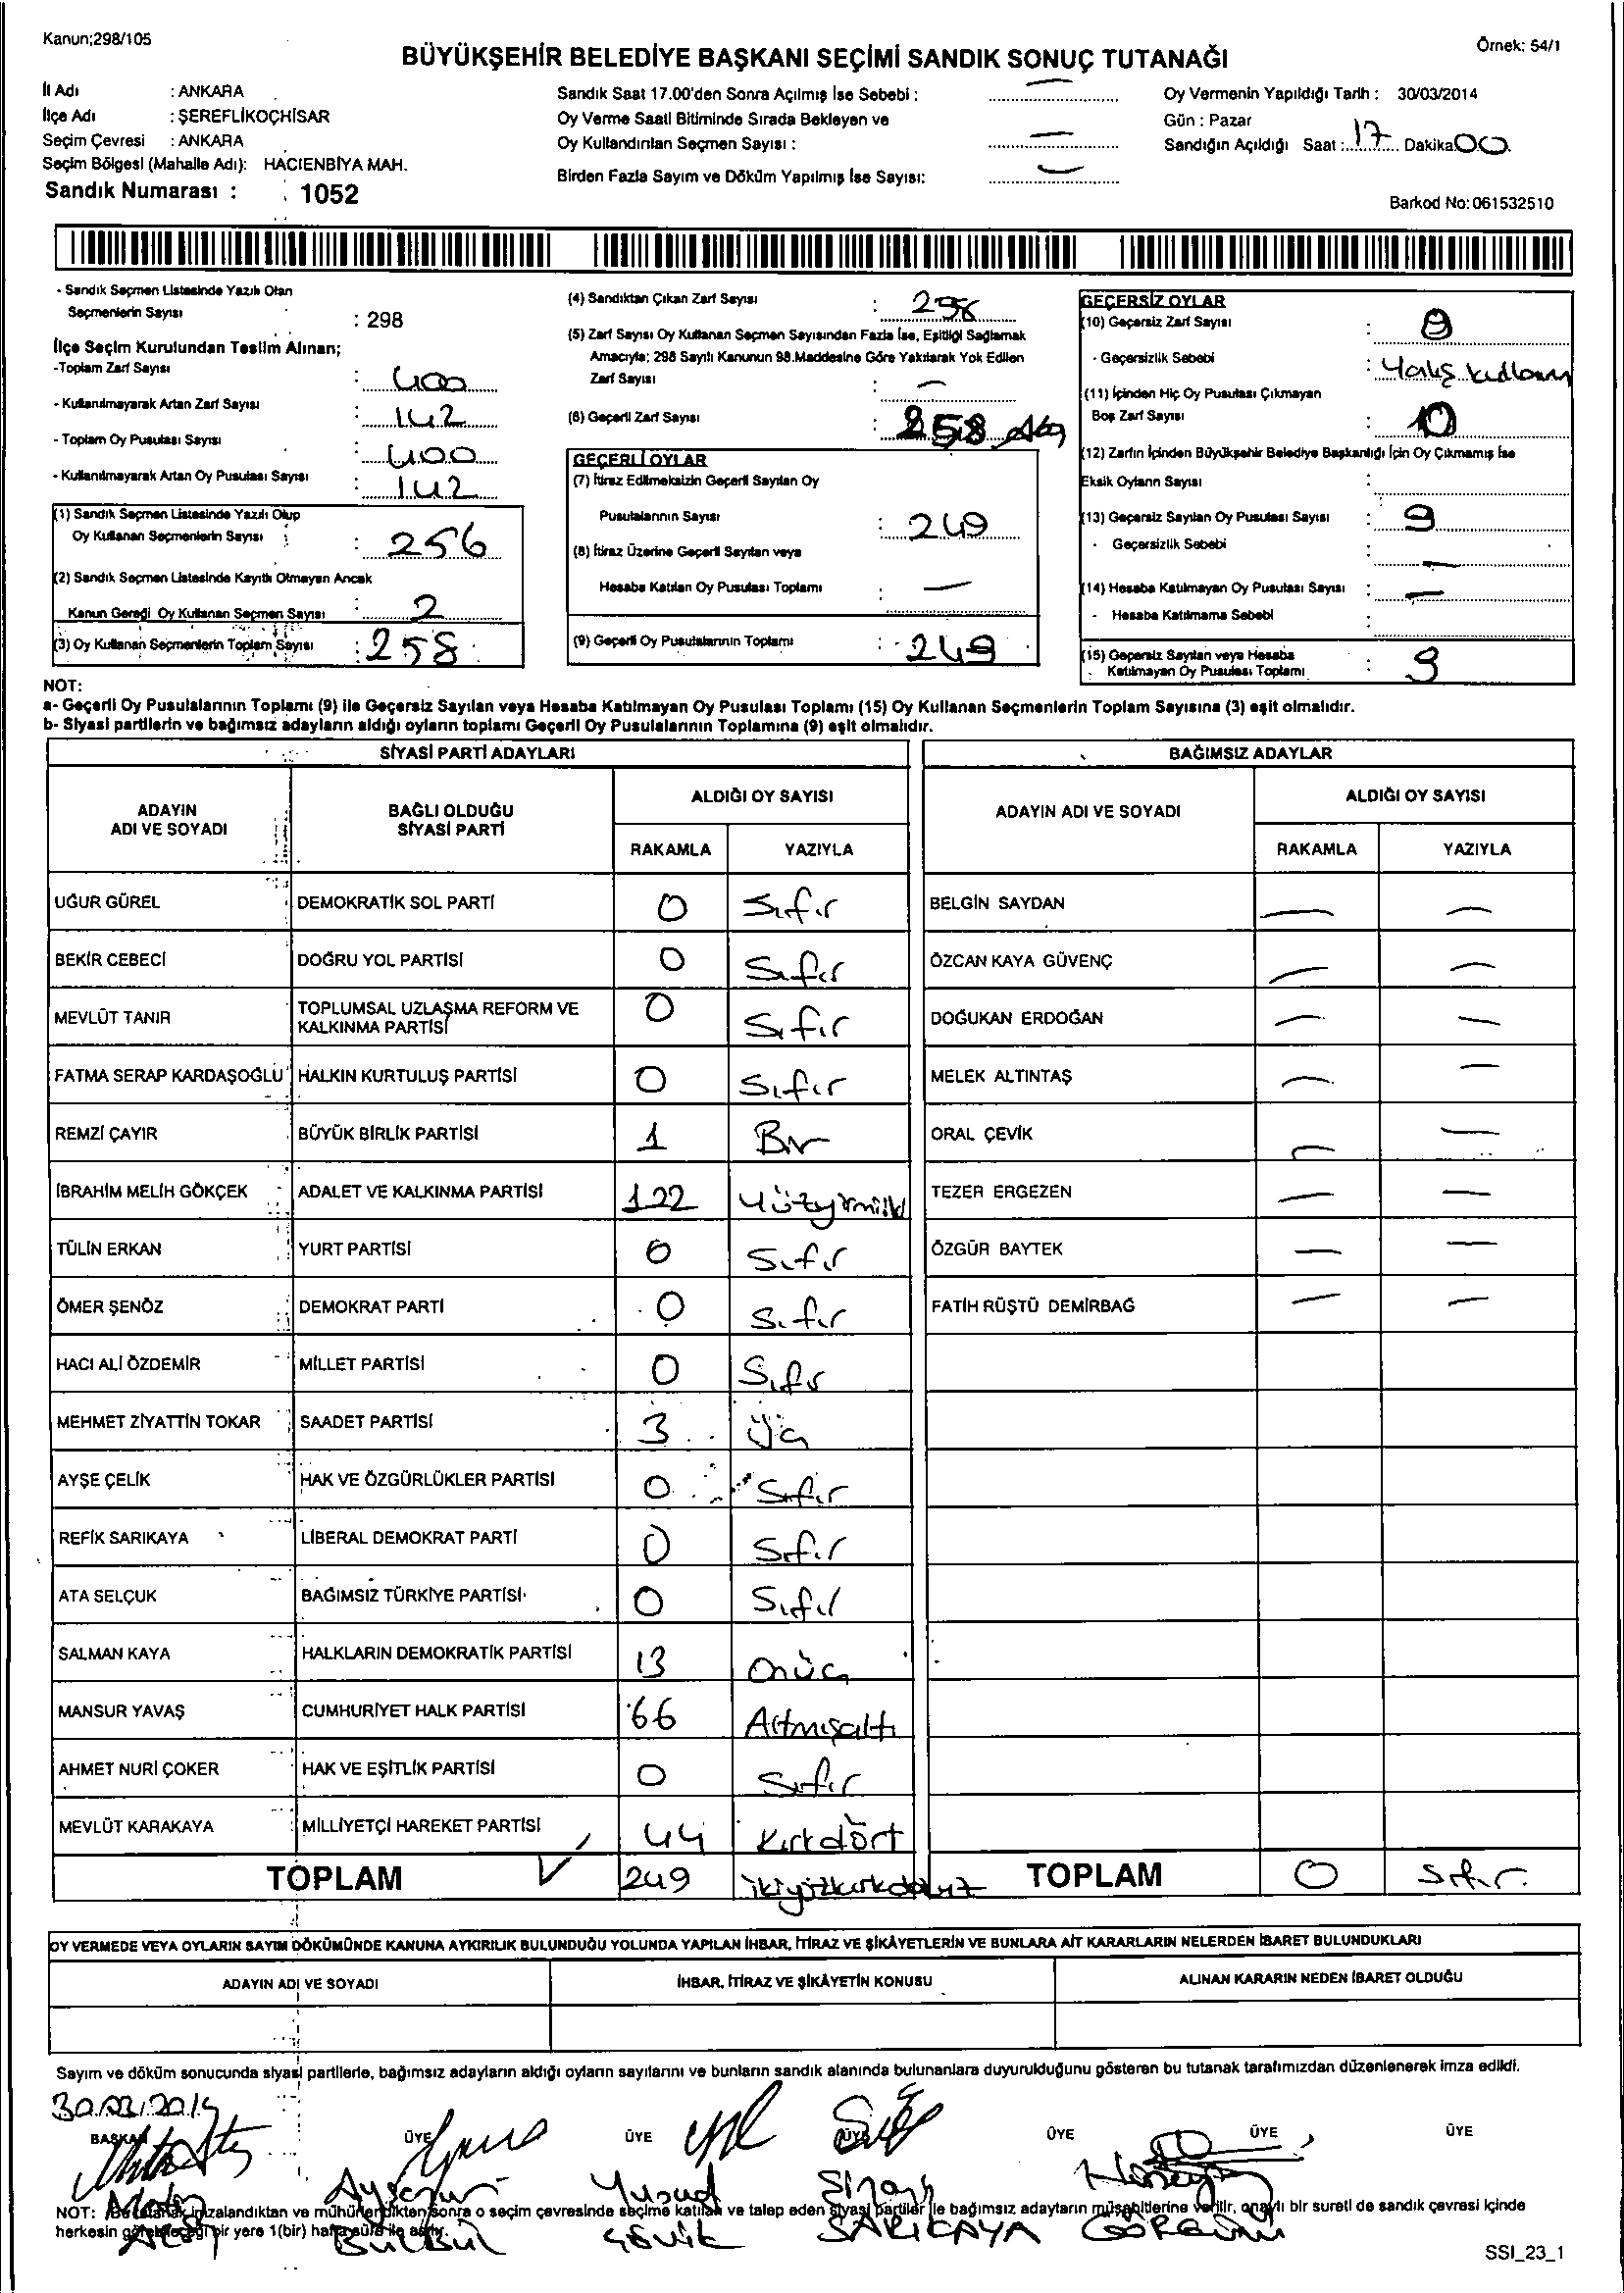 Kanun;298/105
Örnek: 54/1
BÜYÜKŞEHİR BELEDİYE BAŞKANI SEÇİMİ SANDIK SONUÇ TUTANAĞI
İl Adı : ANKARA
İlçe Adı : ŞEREFLİKOÇHİSAR
Seçim Çevresi : ANKARA
Seçim Bölgesi (Mahalle Adı): HACIENBİYA MAH.
Sandık Numarası : 1052
Sandık Saat 17.00'den Sonra Açılmış İse Sebebi : —
Oy Verme Saati Bitiminde Sırada Bekleyen ve
Oy Kullandırılan Seçmen Sayısı : —
Birden Fazla Sayım ve Döküm Yapılmış İse Sayısı: —
Oy Vermenin Yapıldığı Tarih : 30/03/2014
Gün : Pazar
Sandığın Açıldığı Saat : 17 Dakika 00
Barkod No: 061532510
- Sandık Seçmen Listesinde Yazılı Olan
Seçmenlerin Sayısı : 298
İlçe Seçim Kurulundan Teslim Alınan;
-Toplam Zarf Sayısı : 400
- Kullanılmayarak Artan Zarf Sayısı : 142
- Toplam Oy Pusulası Sayısı : 400
- Kullanılmayarak Artan Oy Pusulası Sayısı : 142
(1) Sandık Seçmen Listesinde Yazılı Olup
Oy Kullanan Seçmenlerin Sayısı : 256
(2) Sandık Seçmen Listesinde Kayıtlı Olmayan Ancak
Kanun Gereği Oy Kullanan Seçmen Sayısı : 2
(3) Oy Kullanan Seçmenlerin Toplam Sayısı : 258
(4) Sandıktan Çıkan Zarf Sayısı : 258
(5) Zarf Sayısı Oy Kullanan Seçmen Sayısından Fazla İse, Eşitliği Sağlamak
Amacıyla; 298 Sayılı Kanunun 98.Maddesine Göre Yakılarak Yok Edilen
Zarf Sayısı : —
(6) Geçerli Zarf Sayısı : 258
GEÇERLİ OYLAR
(7) İtiraz Edilmeksizin Geçerli Sayılan Oy
Pusulalarının Sayısı : 249
(8) İtiraz Üzerine Geçerli Sayılan veya
Hesaba Katılan Oy Pusulası Toplamı : —
(9) Geçerli Oy Pusulalarının Toplamı : 249
GEÇERSİZ OYLAR
(10) Geçersiz Zarf Sayısı :
- Geçersizlik Sebebi :
(11) İçinden Hiç Oy Pusulası Çıkmayan
Boş Zarf Sayısı :
(12) Zarfın İçinden Büyükşehir Belediye Başkanlığı İçin Oy Çıkmamış İse
Eksik Oyların Sayısı :
(13) Geçersiz Sayılan Oy Pusulası Sayısı : 9
- Geçersizlik Sebebi : —
(14) Hesaba Katılmayan Oy Pusulası Sayısı : —
- Hesaba Katılmama Sebebi :
(15) Geçersiz Sayılan veya Hesaba
Katılmayan Oy Pusulası Toplamı : 9
NOT:
a- Geçerli Oy Pusulalarının Toplamı (9) ile Geçersiz Sayılan veya Hesaba Katılmayan Oy Pusulası Toplamı (15) Oy Kullanan Seçmenlerin Toplam Sayısına (3) eşit olmalıdır.
b- Siyasi partilerin ve bağımsız adayların aldığı oyların toplamı Geçerli Oy Pusulalarının Toplamına (9) eşit olmalıdır.
SİYASİ PARTİ ADAYLARI
ADAYIN ADI VE SOYADI BAĞLI OLDUĞU SİYASİ PARTİ ALDIĞI OY SAYISI
RAKAMLA YAZIYLA
UĞUR GÜREL DEMOKRATİK SOL PARTİ 0 Sıfır
BEKİR CEBECİ DOĞRU YOL PARTİSİ 0 Sıfır
MEVLÜT TANIR TOPLUMSAL UZLAŞMA REFORM VE KALKINMA PARTİSİ 0 Sıfır
FATMA SERAP KARDAŞOĞLU HALKIN KURTULUŞ PARTİSİ 0 Sıfır
REMZİ ÇAYIR BÜYÜK BİRLİK PARTİSİ 1 Bir
İBRAHİM MELİH GÖKÇEK ADALET VE KALKINMA PARTİSİ 122 Yüzyirmiiki
TÜLİN ERKAN YURT PARTİSİ 0 Sıfır
ÖMER ŞENÖZ DEMOKRAT PARTİ 0 Sıfır
HACI ALİ ÖZDEMİR MİLLET PARTİSİ 0 Sıfır
MEHMET ZİYATTİN TOKAR SAADET PARTİSİ 3 Üç
AYŞE ÇELİK HAK VE ÖZGÜRLÜKLER PARTİSİ 0 Sıfır
REFİK SARIKAYA LİBERAL DEMOKRAT PARTİ 0 Sıfır
ATA SELÇUK BAĞIMSIZ TÜRKİYE PARTİSİ 0 Sıfır
SALMAN KAYA HALKLARIN DEMOKRATİK PARTİSİ 13 Onüç
MANSUR YAVAŞ CUMHURİYET HALK PARTİSİ 66 Altmışaltı
AHMET NURİ ÇOKER HAK VE EŞİTLİK PARTİSİ 0 Sıfır
MEVLÜT KARAKAYA MİLLİYETÇİ HAREKET PARTİSİ 44 Kırkdört
TOPLAM 249 ikiyüzkırkdokuz
BAĞIMSIZ ADAYLAR
ADAYIN ADI VE SOYADI ALDIĞI OY SAYISI
RAKAMLA YAZIYLA
BELGİN SAYDAN — —
ÖZCAN KAYA GÜVENÇ — —
DOĞUKAN ERDOĞAN — —
MELEK ALTINTAŞ — —
ORAL ÇEVİK — —
TEZER ERGEZEN — —
ÖZGÜR BAYTEK — —
FATİH RÜŞTÜ DEMİRBAĞ — —
TOPLAM 0 Sıfır
OY VERMEDE VEYA OYLARIN SAYIM DÖKÜMÜNDE KANUNA AYKIRILIK BULUNDUĞU YOLUNDA YAPILAN İHBAR, İTİRAZ VE ŞİKÂYETLERİN VE BUNLARA AİT KARARLARIN NELERDEN İBARET BULUNDUKLARI
ADAYIN ADI VE SOYADI İHBAR, İTİRAZ VE ŞİKÂYETİN KONUSU ALINAN KARARIN NEDEN İBARET OLDUĞU
Sayım ve döküm sonucunda siyasi partilerle, bağımsız adayların aldığı oyların sayılarını ve bunların sandık alanında bulunanlara duyurulduğunu gösteren bu tutanak tarafımızdan düzenlenerek imza edildi.
30.03.2014
BAŞKAN ÜYE ÜYE ÜYE ÜYE ÜYE ÜYE
Ayşegül Yusuf Sinan Hüseyin
NOT: Bu tutanak imzalandıktan ve mühürlendikten sonra o seçim çevresinde seçime katılan ve talep eden siyasi partiler ile bağımsız adayların müşahitlerine verilir, onaylı bir sureti de sandık çevresi içinde
herkesin görebileceği bir yere 1(bir) hafta süre ile asılır.
BÜLBÜL SARIKAYA
SSI_23_1